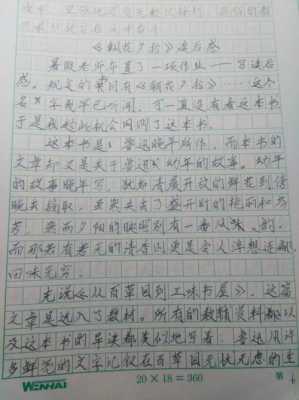 《朝花夕拾》读后感
暑假老师布置了一项作业——写读后
感。规定的书目有《朝花夕拾》……这个
名字我早已听闻,可一直没有看这本书
于是我趁此机会网购了这本书。
这本书是鲁迅晚年所作,而本书的
文章却又是关于鲁迅幼年的故事。幼年
的故事晚年写,就如清晨开放的鲜花到傍
晚去摘取,虽然失去了盛开时的艳丽和芬
芳,然而夕阳的映照别有一番风味
而那若有若无的清香则更是令人浮想连翩
回味无穷。
先说《从百草园到三味书屋》,这篇
文章是选入了教材。所有的教辅资料都以
及这本书的导读都类似地写着:鲁迅用许
多鲜活的文字记叙在百草园无忧无虑的生
WENHAI
20 × 18 = 360
第